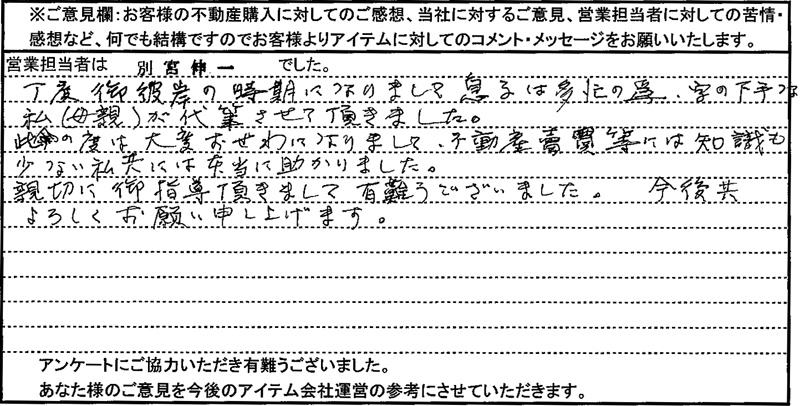 ※ご意見欄:お客様の不動産購入に対してのご感想、当社に対するご意見、営業担当者に対しての苦情・
感想など、何でも結構ですのでお客様よりアイテムに対してのコメント・メッセージをお願いいたします。
営業担当者は 別宮伸一 でした。
丁度御彼岸の時期になりまして息子は多忙の為、字の下手な
私(母親)が代筆させて頂きました。
此の度は大変おせわになりまして、不動産賣買等には知識も
少ない私共には本当に助かりました。
親切に御指導頂きまして有難うございました。 今後共
よろしくお願い申し上げます。
アンケートにご協力いただき有難うございました。
あなた様のご意見を今後のアイテム会社運営の参考にさせていただきます。